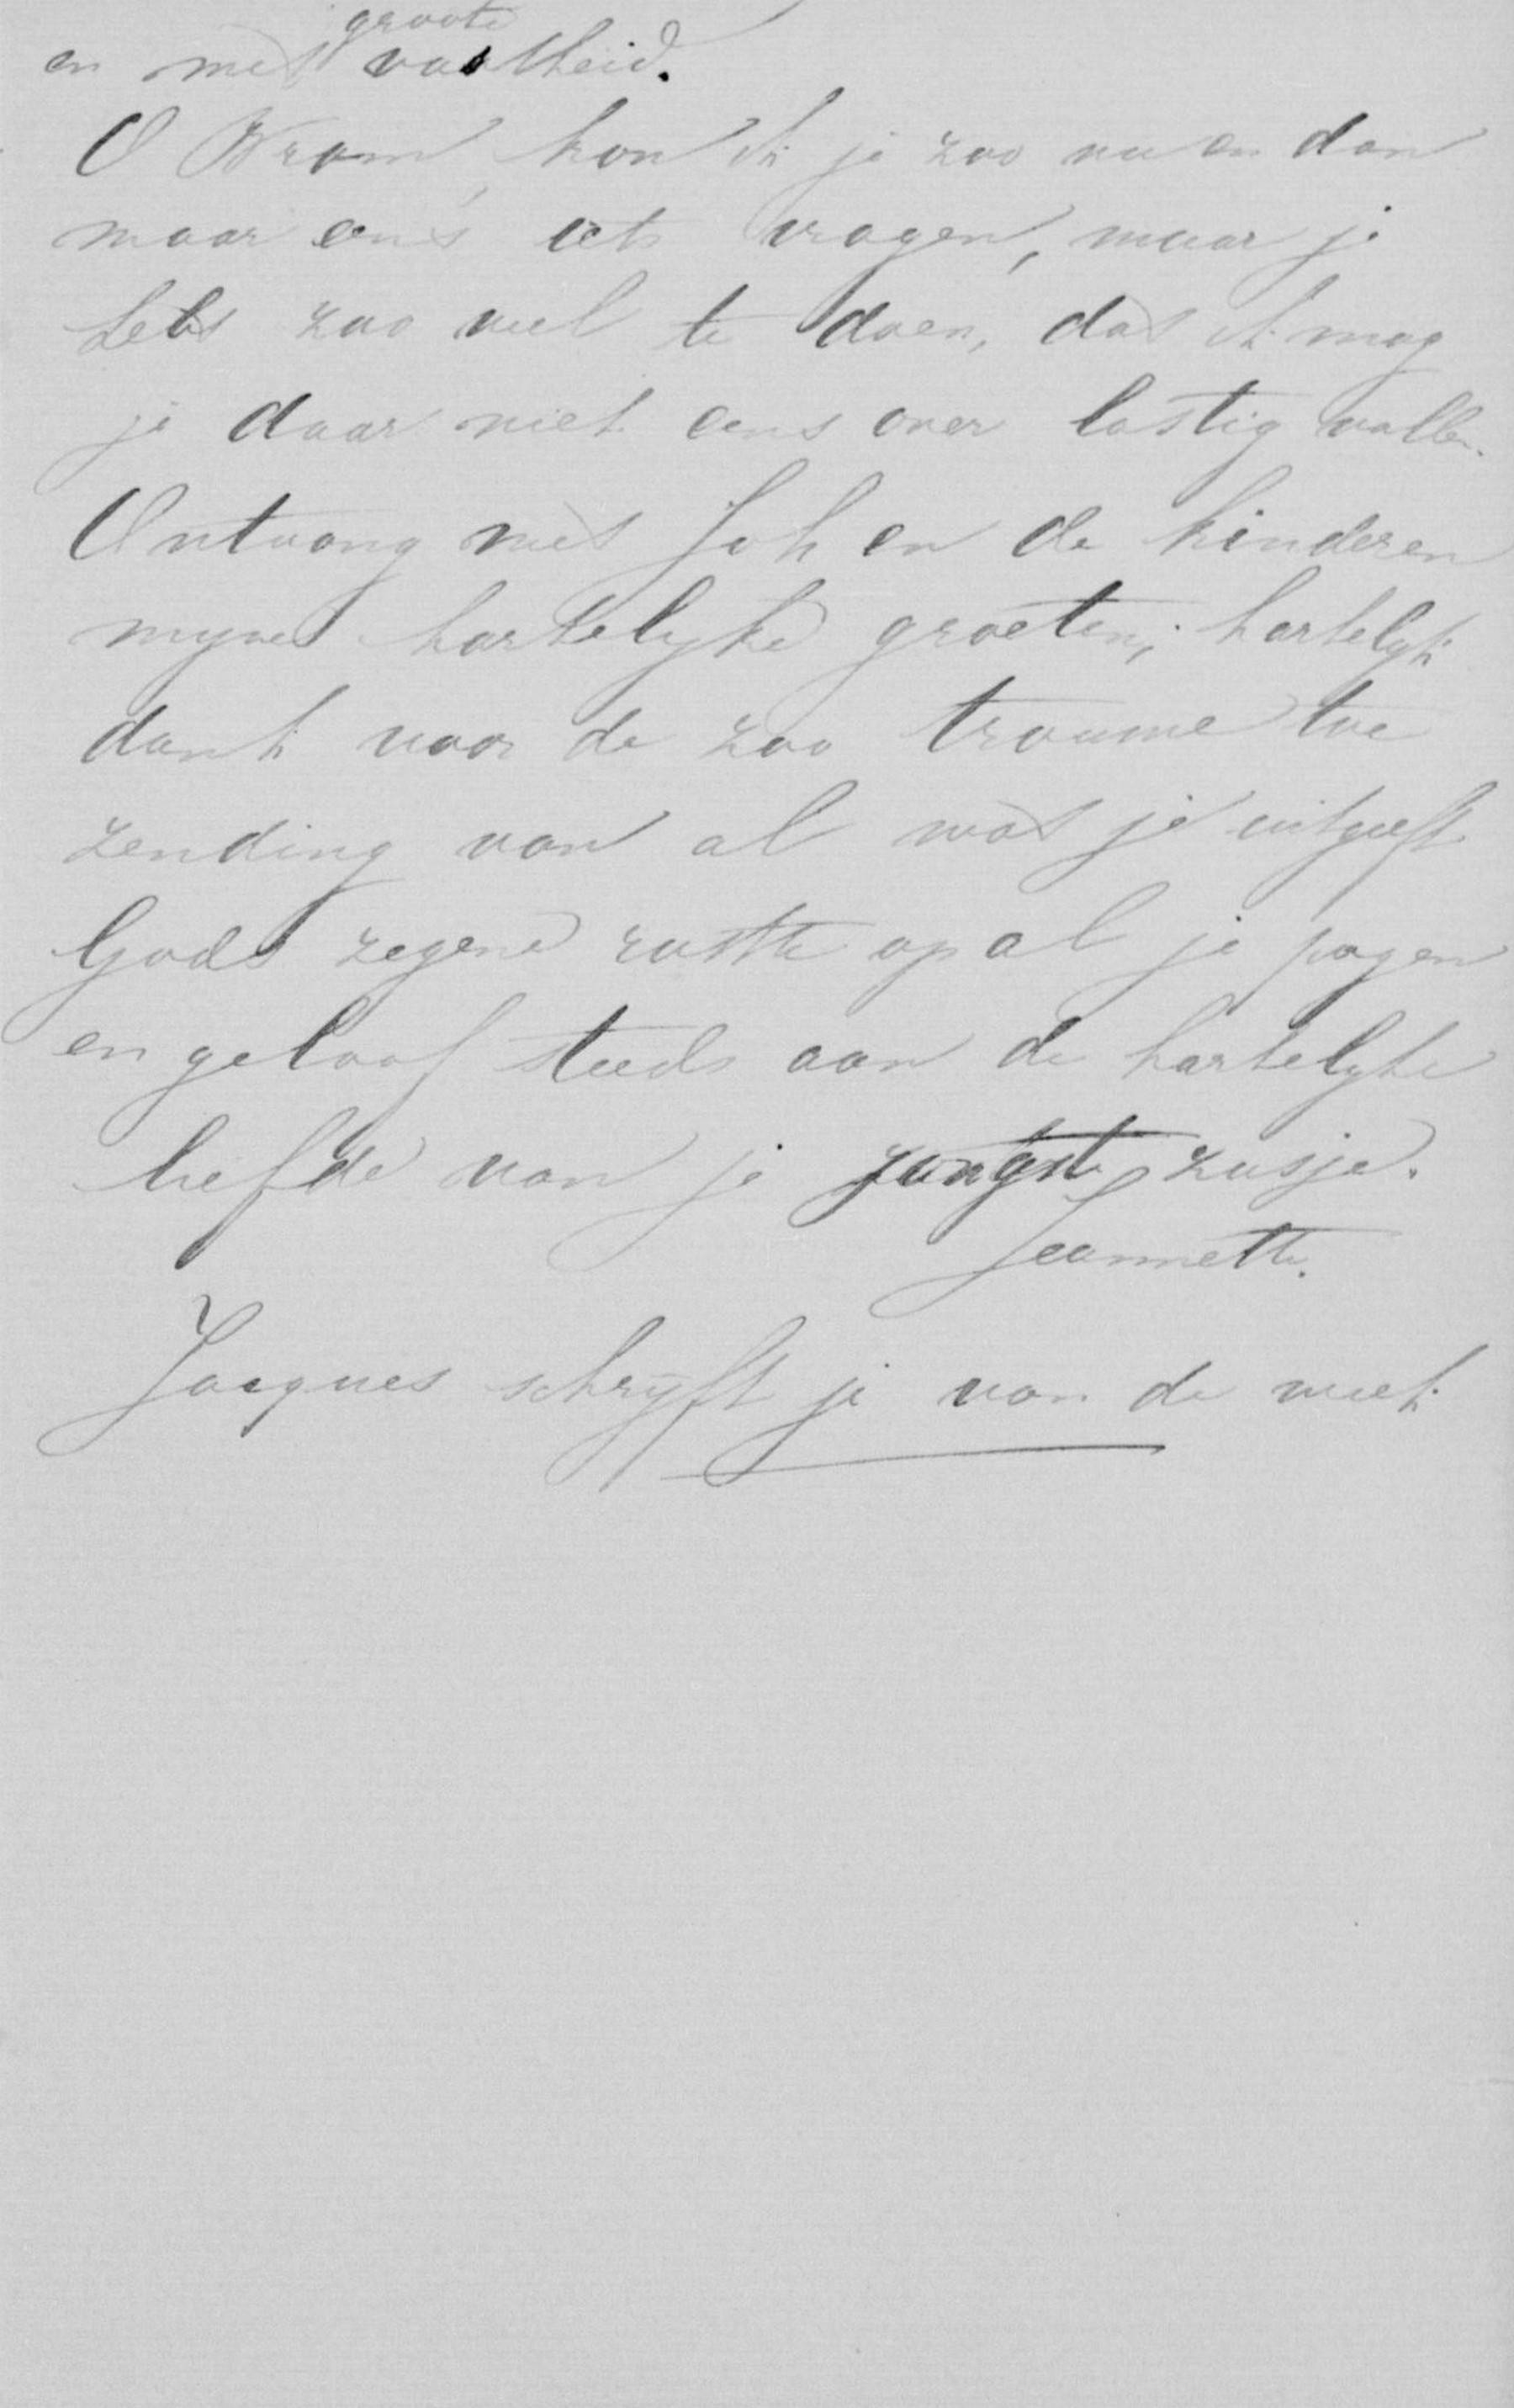 en met groote vastheid.
O Bram, kon ik je zoo nu en dan
maar eens iets vragen, maar je
hebt zoo veel te doen, dat ik mag
je daar niet eens over lastig vallen.
Ontvang met Joh en de kinderen
myne hartelyke groeten; hartelyk
dank voor de zoo trouwe toe
zending van al wat je uitgeeft
Gods zegene rustte op al je pogen
en geloof steeds aan de hartelyke
liefde van je jongste zusje.
Jeannette.
Jacques schryft je van de week